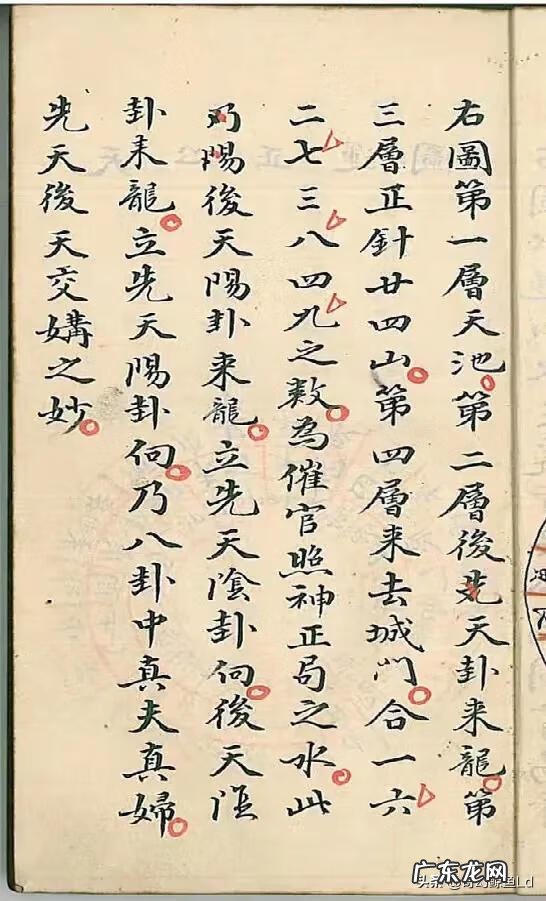 右圖第一層天池。第二層後先天卦來龍。第
三層正針廿四山。第四層来去城門。合一六
二七三八四九之数。為催官照神正局之水。此
乃陽後天陽卦来龍。立先天陰卦向。後天陰
卦来龍。立先天陽卦向。乃八卦中真夫真婦。
先天後天交媾之妙。
广东龙网
头条